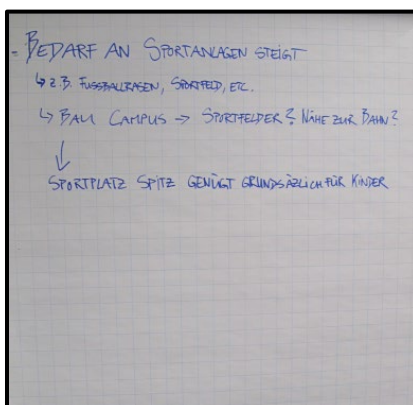 - BEDARF AN SPORTANLAGEN STEIGT
↳ Z.B. FUSSBALLRASEN, SPORTFELD, ETC.
↳ BAU CAMPUS → SPORTFELDER? NÄHE ZUR BAHN?
↓
SPORTPLATZ SPITZ GENÜGT GRUNDSÄZLICH FÜR KINDER